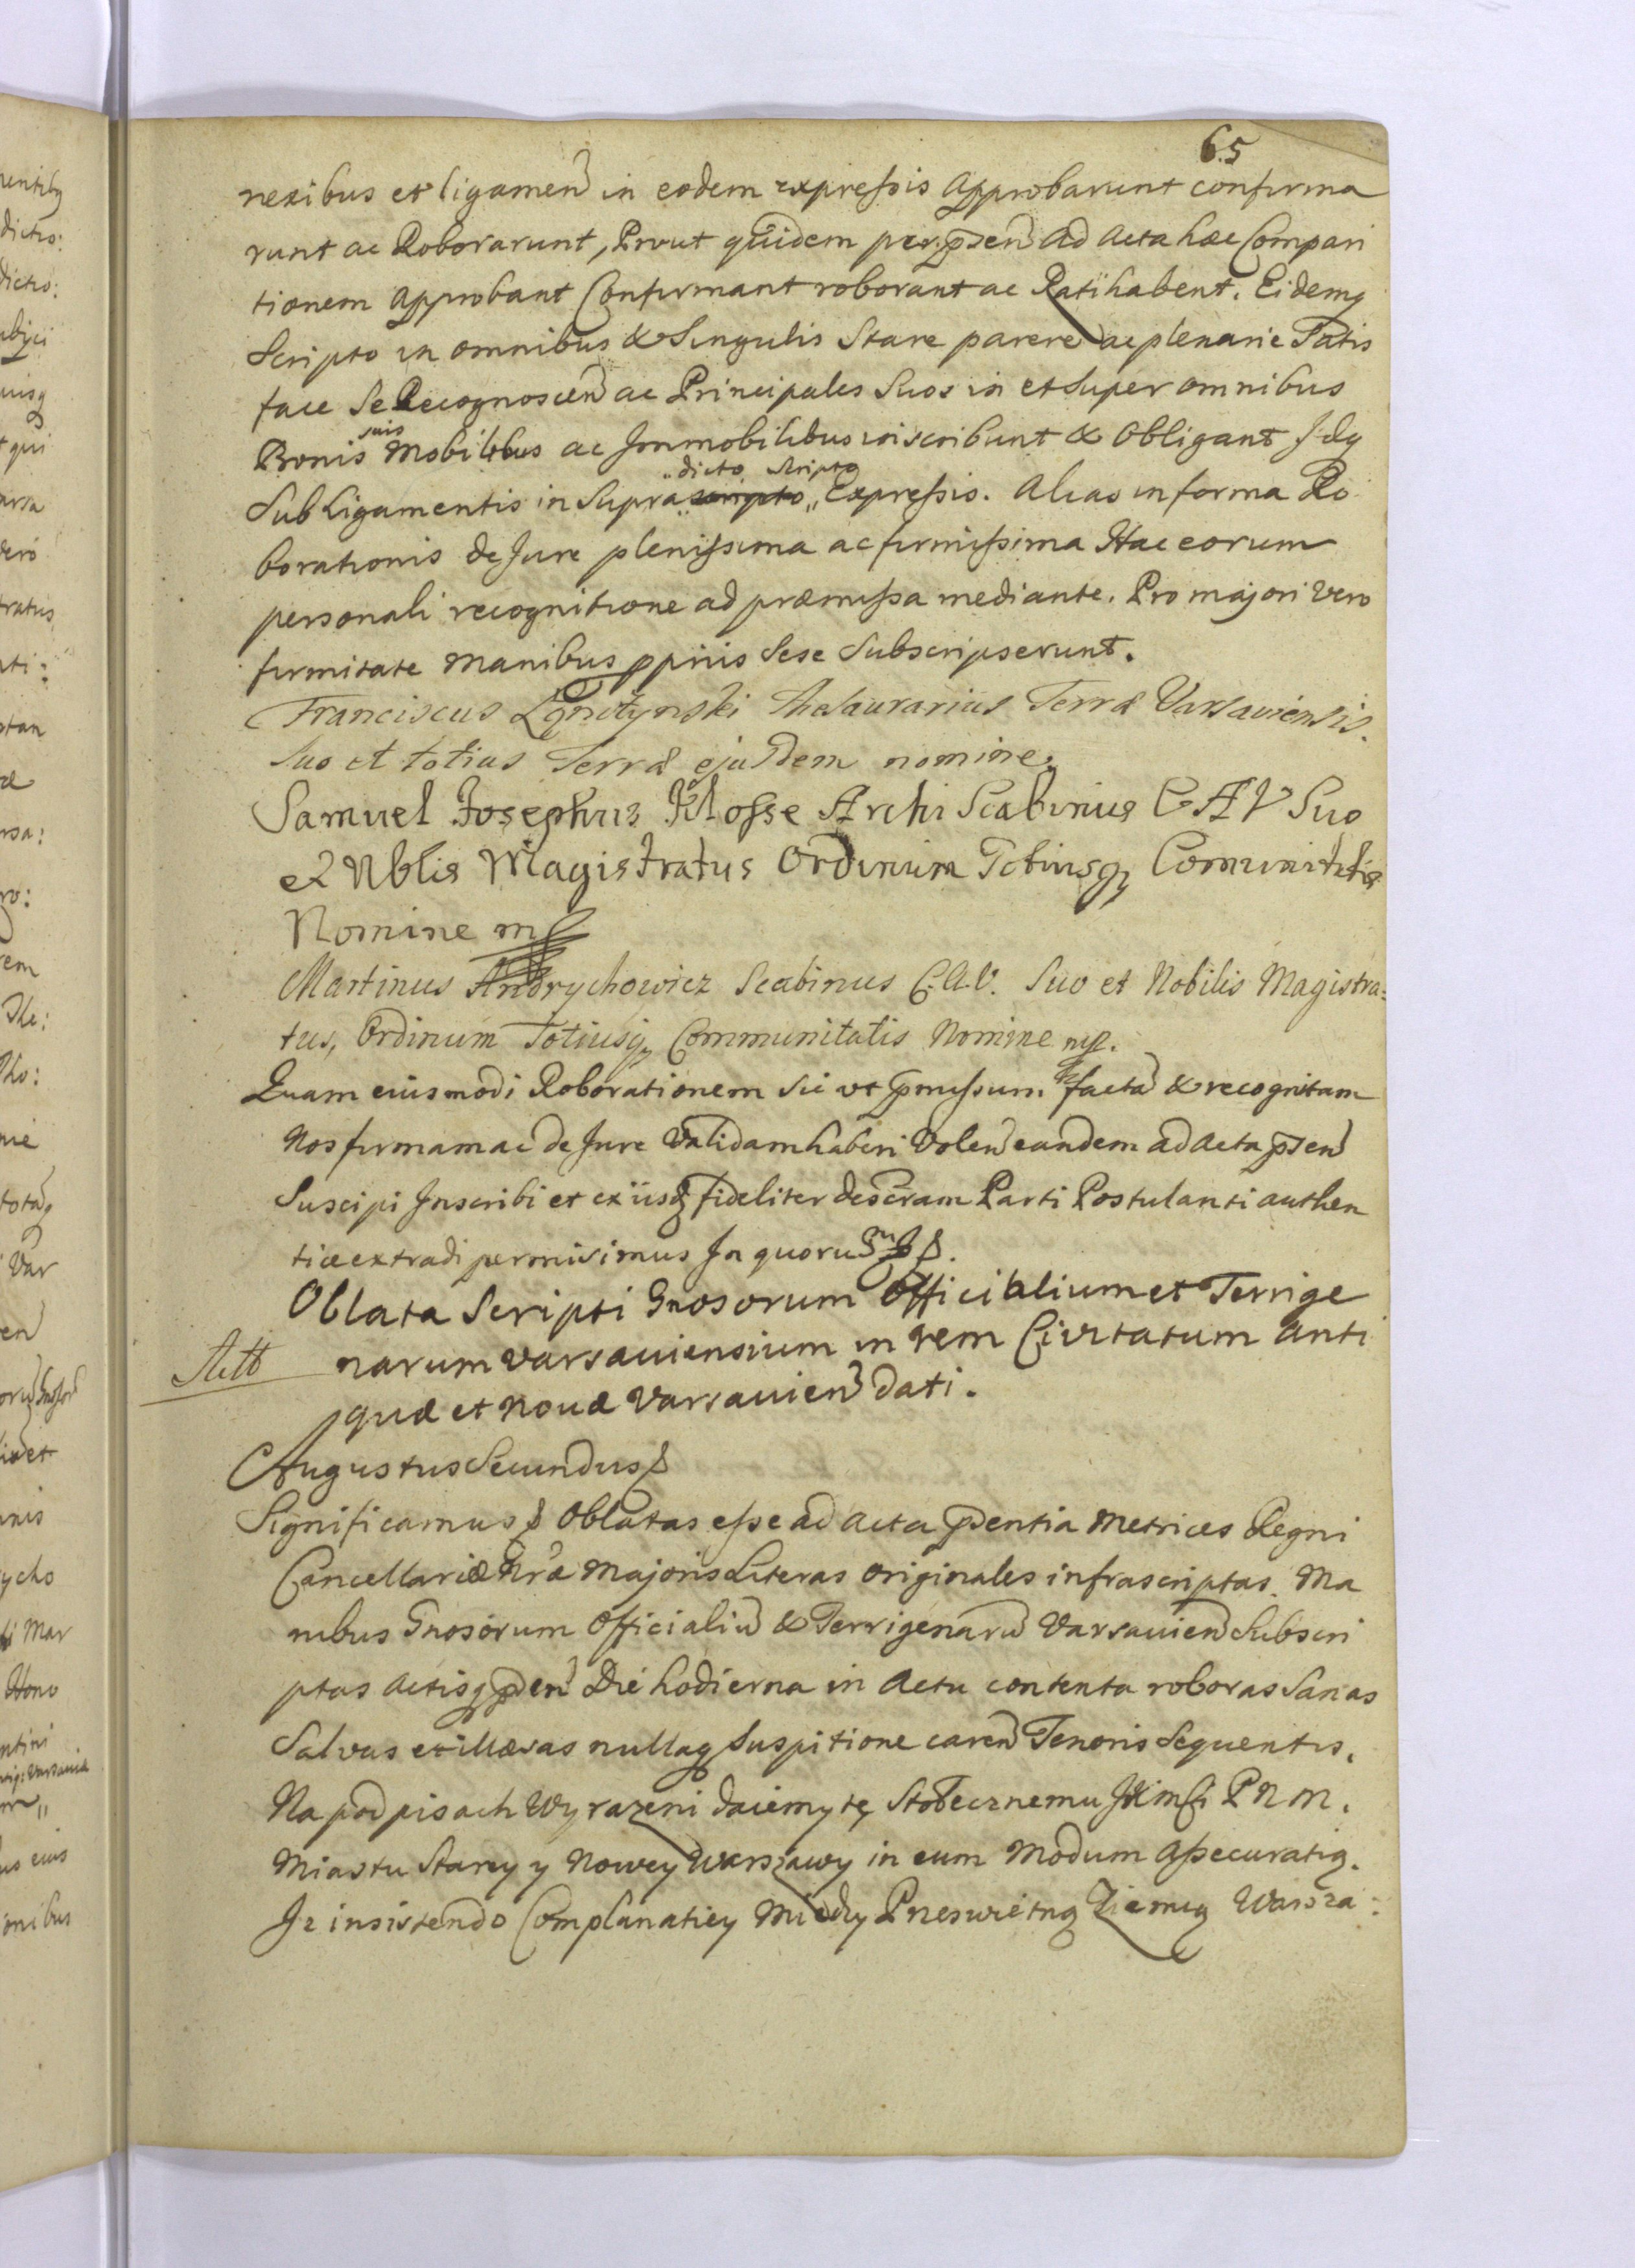 65
nexibus et ligamen in eodem expressis Approbarunt confirma
runt ac Roborarunt, Prout quidem per psen ad acta hæc Compari
tionem Approbant Confirmant roborant ac Ratihabent. Eidemq
Scripto in omnibus & Singulis Stare parere ac plenarie Satis
face Se Recognoscen ac Principales Suos in et Super omnibus
Bonis suis Mobilibus ac Immobilibus inscribunt & Obligant Idq
Sub Ligamentis in Supra scripto dicto Scripto Expressis. Alias in forma Ro
borationis de Jure plenissima ac firmissima Hac eorum
personali recognitione ad præmissa mediante. Pro majori Vero
firmitate Manibus ppriis Sese Subscripserunt.
Franciscus Thesaurarius Terræ Varsaviensis.
Suo et totius Terræ ejusdem nomine.
Samuel Josephus Klosse Archi Scabinus C A V Suo
et Nblis Magistratus Ordinum Totiusq Comunitatis
Nomine mp
Martinus Andrychowicz Scabinus C.A.V. Suo et Nobilis Magistra-
tus, Ordinum Totiusq Communitatis Nomine mp.
Quam eiusmodi Roborationem Sic ut pmissum factã & recognitam
Nos firmam ac de Jure Validam haberi Volen eandem ad Acta psen
Suscipi Inscribi et ex iisd fideliter descram Parti Postulanti authen
tice extradi permisimus In quoru
Oblata Scripti Gnosorum Officialium et Terrige
narum Varsauiensium in rem Civitatum Anti
quæ et Nouæ Varsauien dati.
Augustus Secundus
Significamus Oblatas esse ad Acta psentia Metrices Regni
Cancellariæ Nræ Majoris Literas Originales infrascriptas. Ma
nibus Gnosorum Officialiũ & Terrigenarũ Varsauien Subscri
ptas Actisq psen Die hodierna in Actu contenta roboras Sanas
Salvas et illæsas nullaq Suspitione caren Tenoris Sequentis.
Na podpisach Wyrazeni daiemy tę Stołecznemu P N M.
Miastu Starey y Nowey Warszawy in eum Modum Assecuratią.
Iz insistendo Complanatiey Między Prześwietną Ziemią Warsza: